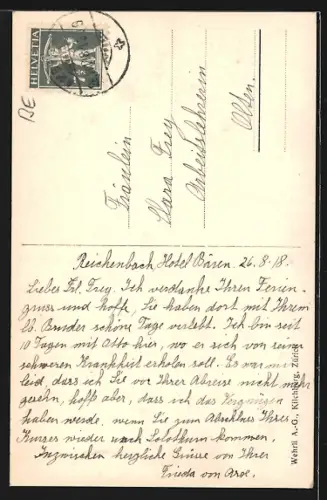 HELVETIA
BE
Fräulein
Clara Frey
Arbeitslehrerin
Olten.
Reichenbach, Hotel Bären. 26.8.18.
Liebes Frl. Frey. Ich verdanke Ihren Ferien-
gruss und hoffe, Sie haben dort mit Ihrem
lb. Bruder schöne Tage verlebt. Ich bin seit
10 Tagen mit Otto hier, wo er sich von seiner
schweren Krankheit erholen soll. Es war mir
leid, dass ich Sie vor Ihrer Abreise nicht mehr
gesehen, hoff aber, dass ich das Vergnügen
haben werde, wenn Sie zum Abschluss Ihres
Kurses wieder nach Solothurn kommen.
Inzwischen herzliche Grüsse von Ihrer
Frieda von Arx.
Wehrli A.-G., Kilchberg, Zürich